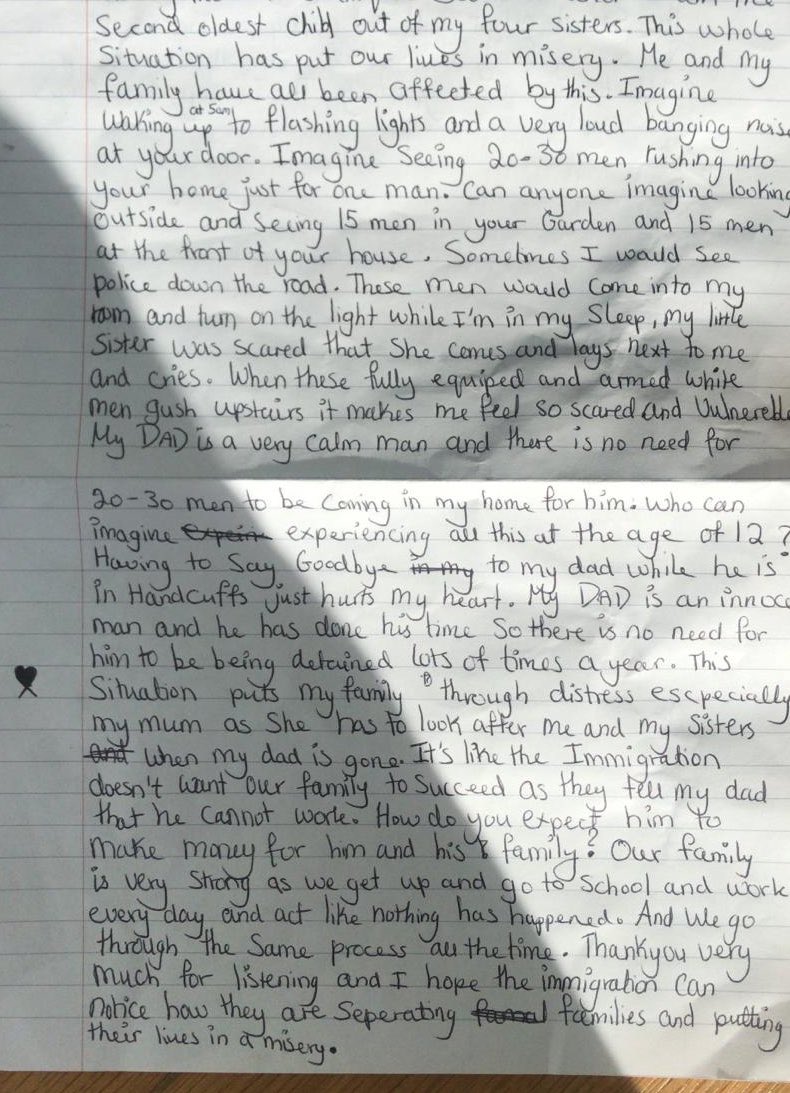 Second oldest child out of my four sisters. This whole
Situation has put our lives in misery. Me and my
family have all been affected by this. Imagine
Waking up at 5am to flashing lights and a very loud banging nois
at your door. Imagine Seeing 20-30 men rushing into
your home just for one man. Can anyone imagine looking
outside and seeing 15 men in your Garden and 15 men
at the front of your house. Sometimes I would see
police down the road. These men would come into my
room and turn on the light while I'm in my Sleep, my little
Sister was scared that She comes and lays next to me
and cries. When these fully equiped and armed white
men gush upstairs it makes me feel so scared and Vulnerable
My DAD is a very calm man and there is no need for
20-30 men to be coming in my home for him. Who can
imagine experiencing all this at the age of 12?
Having to Say Goodbye to my dad while he is
in Handcuffs just hurts my heart. My DAD is an innoc
man and he has done his time So there is no need for
him to be being detained lots of times a year. This
Situation puts my family through distress escpecially
my mum as She has to look after me and my Sisters
when my dad is gone. It's like the Immigration
doesn't want our family to succeed as they tell my dad
that he cannot work. How do you expect him to
make money for him and his family? Our family
is very strong as we get up and go to School and work
every day and act like nothing has happened. And We go
through the Same process all the time. Thankyou very
much for listening and I hope the immigration can
notice how they are Seperating families and putting
their lives in a misery.